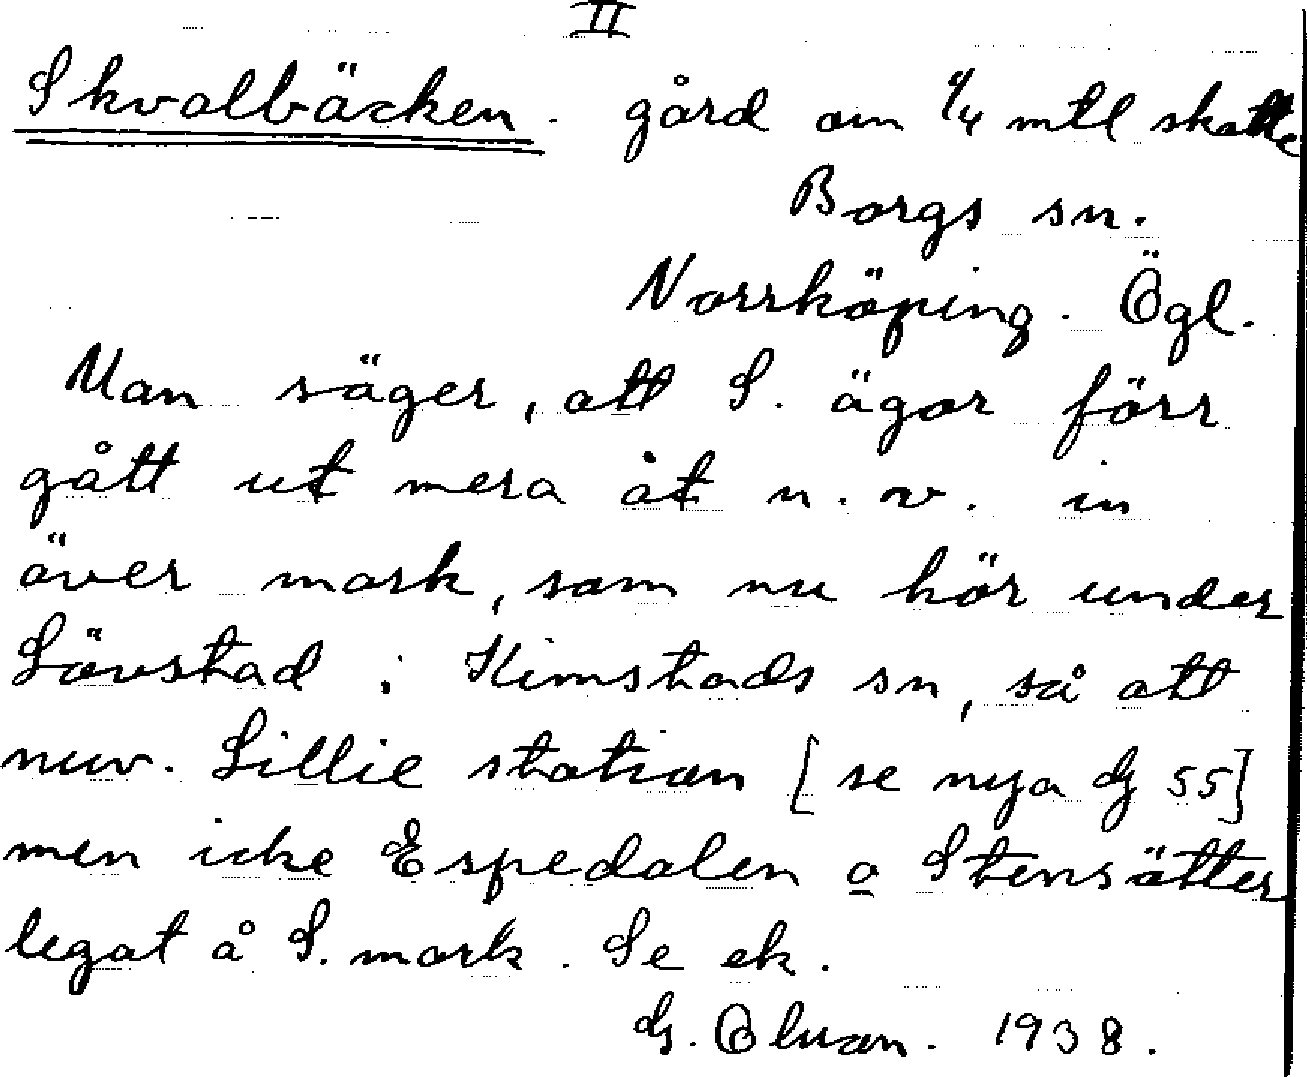 II
Skvalbäcken. gård om 1/4 mtl skatte
Borgs sn.
Norrköping. Ögl.
Man säger, att S. ägor förr
gått ut mera åt n. v. in
över mark, som nu hör under
Lövstad i Kimstads sn, så att
nuv. Lillie station [se nya 55]
men icke Espedalen o Stensätter
legat å S. mark. Se ek.
G. Olson. 1938.